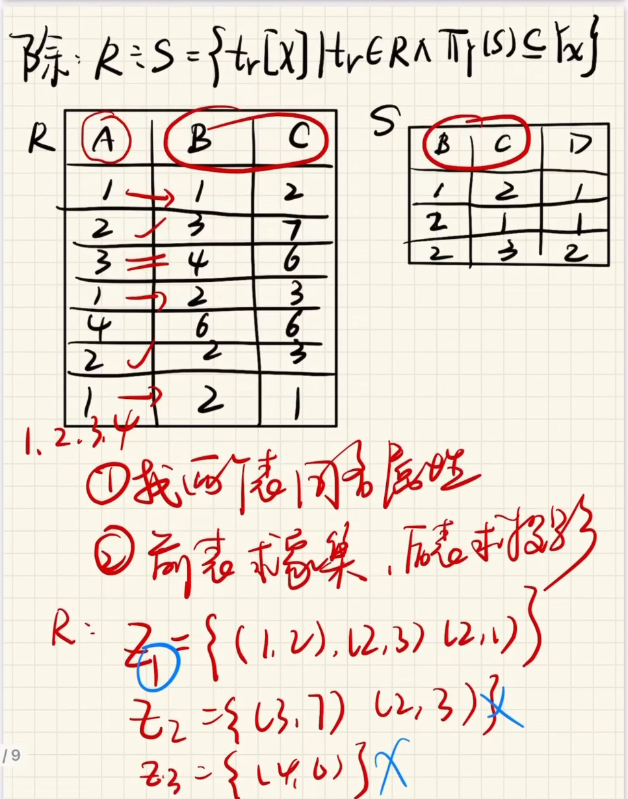 除: R÷S={tr[X]|tr∈R∧πy(S)⊆Yx}
R
A B C
1 1 2
2 3 7
3 4 6
1 2 3
4 6 6
2 2 3
1 2 1
S
B C D
1 2 1
2 1 1
2 3 2
1.2.3.4
①找两个表同名属性
②前表求象集,后表求投影
R: Z1={(1,2),(2,3)(2,1)}
Z2={(3,7)(2,3)}
Z3={(4,6)}
/9